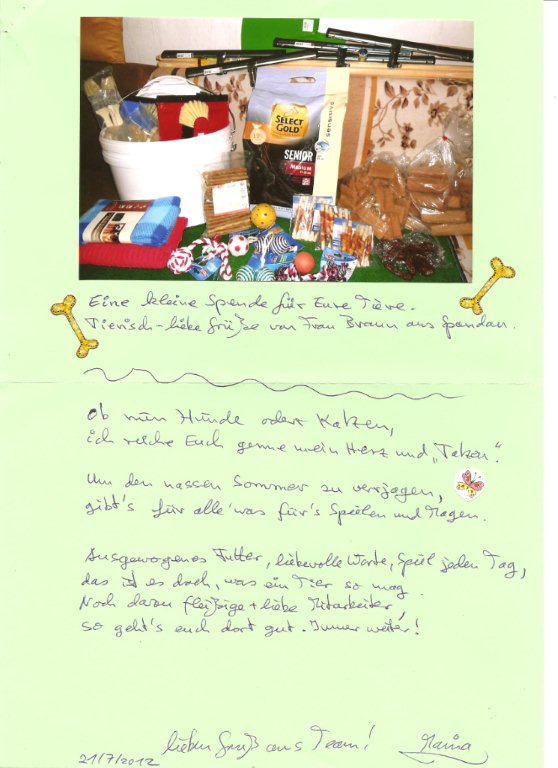 SELECT
GOLD
sensitive
SENIOR
Medium
Eine kleine Spende für Eure Tiere.
Tierisch-liebe Grüße von Frau Braun aus Spandau.
Ob nun Hunde oder Katzen,
ich reiche Euch gerne mein Herz und „Tatzen".
Um den nassen Sommer zu verjagen,
gibt's für alle 'was für's Spielen und Magen.
Ausgewogenes Futter, liebevolle Worte, Spiel jeden Tag,
das ist es doch, was ein Tier so mag.
Noch davon fleißige + liebe Mitarbeiter,
so geht's euch dort gut. Immer weiter!
lieben Gruß ans Team!
21/7/2012